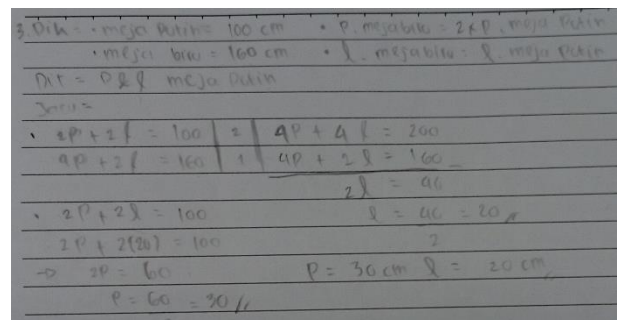 3. Dik = · meja putih = 100 cm · P. meja biru = 2 x P. meja putih
· meja biru = 160 cm · l. meja biru = l. meja putih
Dit = P & l meja putih
Jawab =
· 2P + 2l = 100 | 2 | 4P + 4l = 200
4P + 2l = 160 | 1 | 4P + 2l = 160 -
2l = 40
· 2P + 2l = 100 l = 40 = 20 //
2P + 2(20) = 100 2
→ 2P = 60 P = 30 cm l = 20 cm //
P = 60 = 30 //